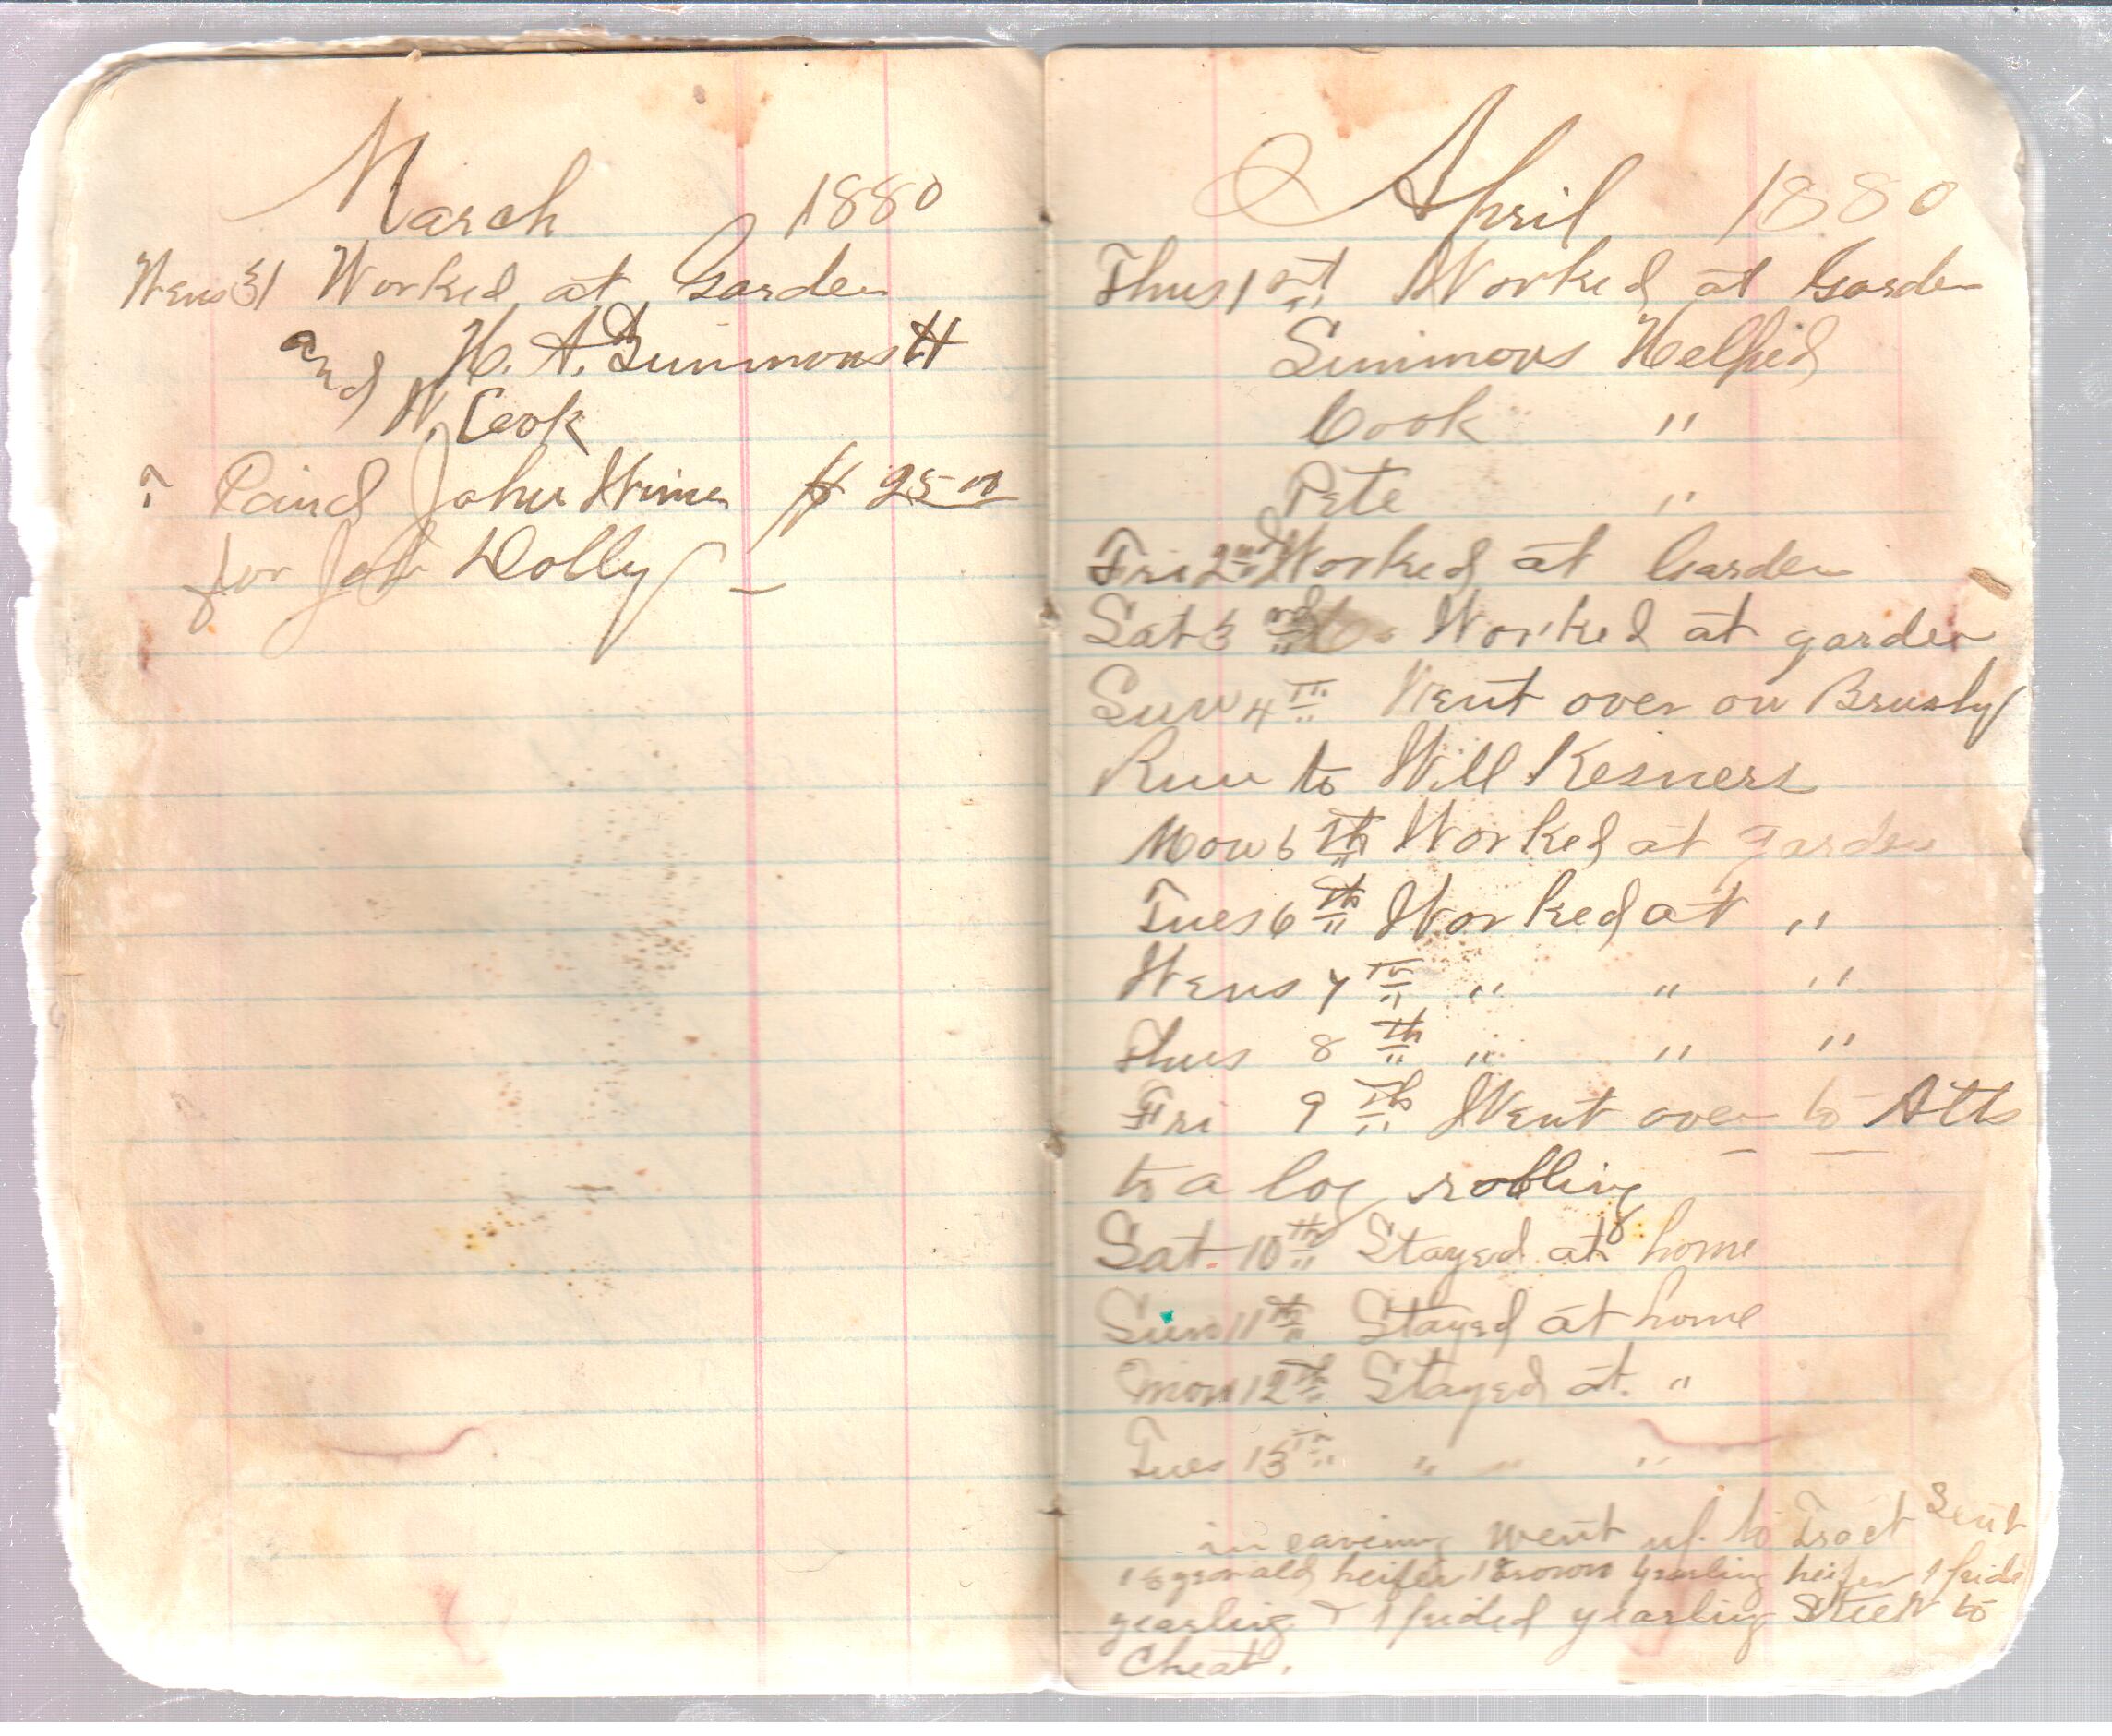 March 1880
Wens 31 Worked at Garden
and H. A. Simmons H
W. Cook
Paid John Hiner $ 25 00
for Job Dolly
April 1880
Thus 1 st Worked at Garden
Simmons Helped
Cook "
Pete "
Fri 2nd Worked at Garden
Sat 3 rd Worked at garden
Sun 4 Th Went over on Brushy
Run to Will Kesners
Mon 5 Th Worked at garden
Tues 6 th Worked at "
Wens 7 Th " " "
Thus 8 th " " "
Fri 9 Th Went over to Atts
to a log rolling
Sat. 10 th Stayed at home
Sun 11 th Stayed at home
Mon 12 Th Stayed at "
Tues 13 Th " " "
in eavening went up to Tract Sent
1 8 year old heifer 1 Brown yearling heifer 1
yearling & 1 yearling Steer to
Cheat.